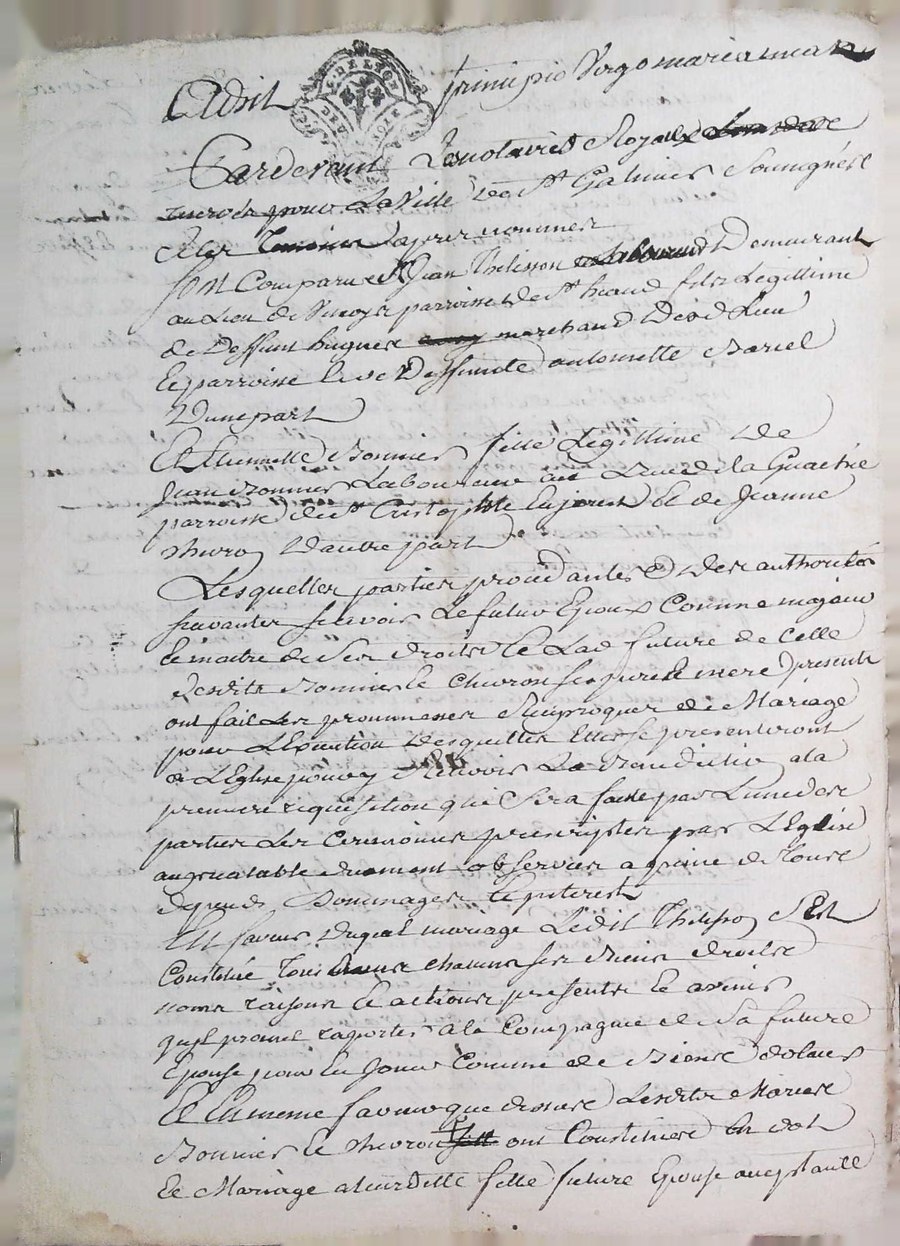 Adsit principio Virgo maria
Pardevant Le notaire Royal
pour La Ville de St Galmier Soussigné
Et les Temoins apres nommes
fut Comparu Sr Jean Thelisson Demeurant
au Lieu de parroisse de St heand fils Legittime
de Deffunt hugues marchand dud Lieu
Et parroisse Et de Deffunte antoinette
Dune part
Et Bonnier fille Legittime De
Jean Bonnier Laboureur au de la
parroisse de St Cristophle Et de Jeanne
Dautre part
Lesquelles parties proced antes De des authorités
suivantes scavoir Le futur Epoux Comme majeur
Et maitre de Ses droits Et Lad future de Celle
desdits Bonnier Et Chivron ses pere Et mere presents
ont fait Les prommesses Reciproques de Mariage
pour LExecution Desquelles Elles se presenteront
a LEglise pour y Recevoir La Benediction a la
premiere requisition qui Sera faitte par Lune des
parties Les Ceremonies prescriptes par LEglise
au prealable duement observées a peine de tous
depends Dommages Et interest
En faveur Duquel mariage Ledit Thelisson Sest
Constitué Tous chacuns ses Biens droits
noms raisons Et actions presents Et avenir
quil promet raporter a la Compagnie de Sa future
Epouse pour En Jouir Comme de Biens dotaux
Et En meme faveur que dessus Lesdits Mariés
Bonnier Et Chivron ont Constitués En dot
Et Mariage a leurditte fille future Epouse acceptante